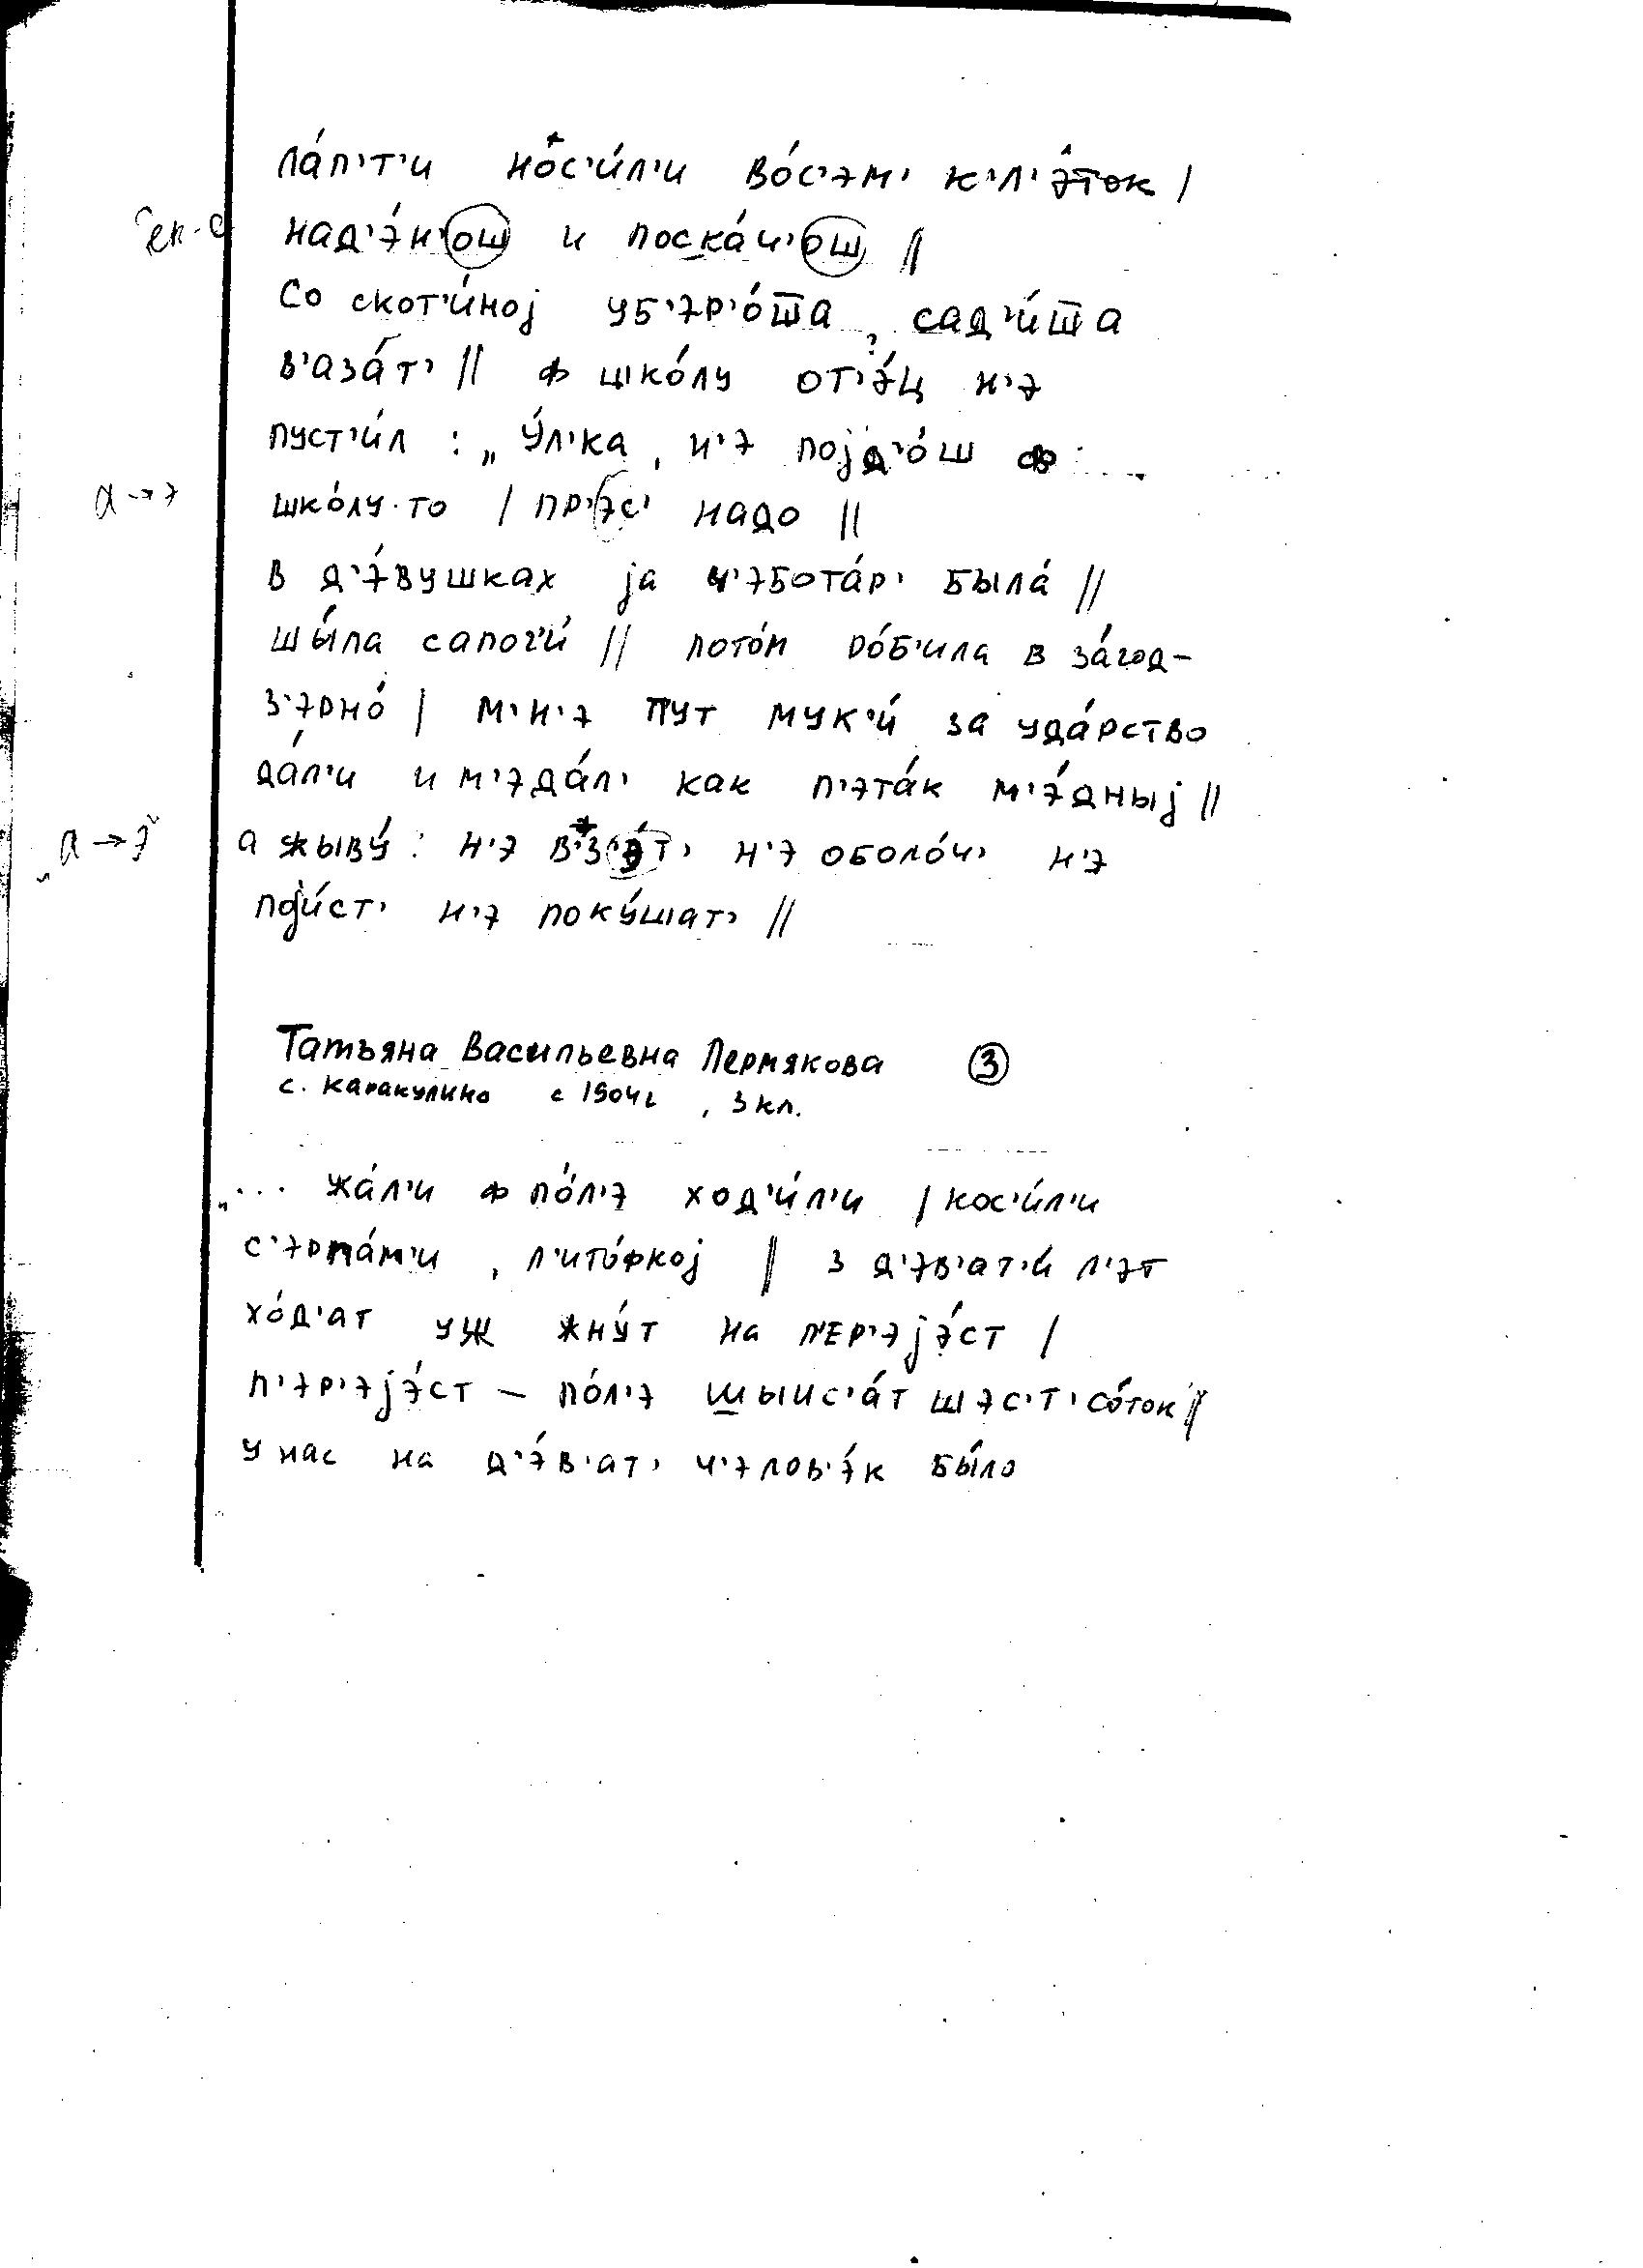 ла́п'т'и но̂с'и́л'и во́с'эм' к'л'э́ток |
над'э́н'ош и поска́ч'ош ||
со скот'и́ној уб'эр'о́т̅ш̅а, сад'и́т̅ш̅а
в'аза́т' || ф шко́лу от'э́ц н'э
пуст'и́л : „У́л'ка, н'э појд'о́ш ф
a → э шко́лу-то | пр'эс' надо ||
в д'э́вушках ја ч'эбота́р' была́ ||
шы́ла сапог'и́ || пото́м ро́б'ила в за́год-
з'эрно́ | м'н'э пут мук'и́ за уда́рство
да́л'и и м'эда́л' как п'эта́к м'э́дныј ||
a → э а жыву́ : н'э в'з'э́т' н'э оболо́ч' н'э
поји́ст' н'э поку́шат' ||
Татьяна Васильевна Пермякова ③
с. Каракулино с 1904г, 3 кл.
„... жа́л'и ф по́л'э ход'и́л'и | кос'и́л'и
с'эрпа́м'и, л'ито́фкој || з д'эв'ат'и́ л'эт
хо́д'ат уж жну́т на п'ер'эјэ́ст |
п'эр'эјэ́ст — по́л'э шыис'а́т шэс'т' со́ток ||
у нас на д'э́в'ат' ч'элов'э́к бы́ло